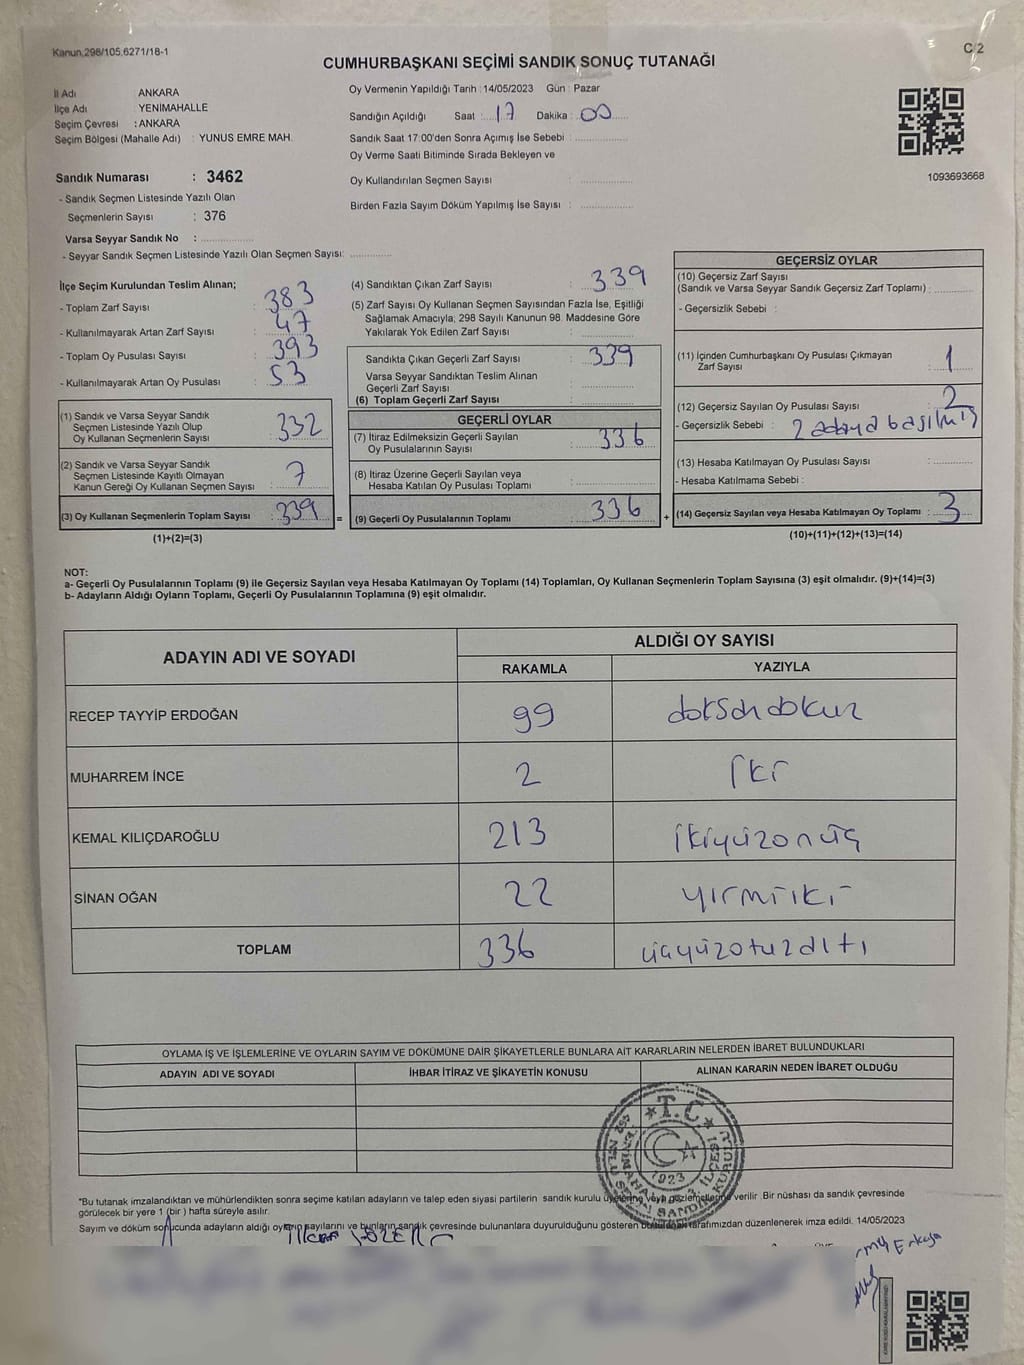 Kanun.298/105.6271/18-1
C 2
CUMHURBAŞKANI SEÇİMİ SANDIK SONUÇ TUTANAĞI
İl Adı ANKARA
İlçe Adı YENİMAHALLE
Seçim Çevresi : ANKARA
Seçim Bölgesi (Mahalle Adı) : YUNUS EMRE MAH.
Sandık Numarası : 3462
- Sandık Seçmen Listesinde Yazılı Olan
Seçmenlerin Sayısı : 376
Varsa Seyyar Sandık No : ................
- Seyyar Sandık Seçmen Listesinde Yazılı Olan Seçmen Sayısı: ............
Oy Vermenin Yapıldığı Tarih : 14/05/2023 Gün : Pazar
Sandığın Açıldığı Saat : 17 Dakika : 00
Sandık Saat 17:00'den Sonra Açımış İse Sebebi : ................
Oy Verme Saati Bitiminde Sırada Bekleyen ve
Oy Kullandırılan Seçmen Sayısı : ................
Birden Fazla Sayım Döküm Yapılmış İse Sayısı : ................
1093693668
İlçe Seçim Kurulundan Teslim Alınan;
- Toplam Zarf Sayısı : 383
- Kullanılmayarak Artan Zarf Sayısı : 47
- Toplam Oy Pusulası Sayısı : 393
- Kullanılmayarak Artan Oy Pusulası : 53
(1) Sandık ve Varsa Seyyar Sandık
Seçmen Listesinde Yazılı Olup
Oy Kullanan Seçmenlerin Sayısı : 332
(2) Sandık ve Varsa Seyyar Sandık
Seçmen Listesinde Kayıtlı Olmayan
Kanun Gereği Oy Kullanan Seçmen Sayısı : 7
(3) Oy Kullanan Seçmenlerin Toplam Sayısı : 339
(1)+(2)=(3)
=
(4) Sandıktan Çıkan Zarf Sayısı : 339
(5) Zarf Sayısı Oy Kullanan Seçmen Sayısından Fazla İse, Eşitliği
Sağlamak Amacıyla, 298 Sayılı Kanunun 98. Maddesine Göre
Yakılarak Yok Edilen Zarf Sayısı : ................
Sandıkta Çıkan Geçerli Zarf Sayısı : 339
Varsa Seyyar Sandıktan Teslim Alınan
Geçerli Zarf Sayısı : ................
(6) Toplam Geçerli Zarf Sayısı : ................
GEÇERLİ OYLAR
(7) İtiraz Edilmeksizin Geçerli Sayılan
Oy Pusulalarının Sayısı : 336
(8) İtiraz Üzerine Geçerli Sayılan veya
Hesaba Katılan Oy Pusulası Toplamı : ................
(9) Geçerli Oy Pusulalarının Toplamı : 336
+
GEÇERSİZ OYLAR
(10) Geçersiz Zarf Sayısı
(Sandık ve Varsa Seyyar Sandık Geçersiz Zarf Toplamı) : ............
- Geçersizlik Sebebi :
(11) İçinden Cumhurbaşkanı Oy Pusulası Çıkmayan
Zarf Sayısı : 1
(12) Geçersiz Sayılan Oy Pusulası Sayısı : 2
- Geçersizlik Sebebi : 2 adaya basılmış
(13) Hesaba Katılmayan Oy Pusulası Sayısı : ............
- Hesaba Katılmama Sebebi :
(14) Geçersiz Sayılan veya Hesaba Katılmayan Oy Toplamı : 3
(10)+(11)+(12)+(13)=(14)
NOT:
a- Geçerli Oy Pusulalarının Toplamı (9) ile Geçersiz Sayılan veya Hesaba Katılmayan Oy Toplamı (14) Toplamları, Oy Kullanan Seçmenlerin Toplam Sayısına (3) eşit olmalıdır. (9)+(14)=(3)
b- Adayların Aldığı Oyların Toplamı, Geçerli Oy Pusulalarının Toplamına (9) eşit olmalıdır.
ADAYIN ADI VE SOYADI
ALDIĞI OY SAYISI
RAKAMLA YAZIYLA
RECEP TAYYİP ERDOĞAN 99 doksandokuz
MUHARREM İNCE 2 İki
KEMAL KILIÇDAROĞLU 213 ikiyüzonüç
SİNAN OĞAN 22 yirmiiki
TOPLAM 336 üçyüzotuzaltı
OYLAMA İŞ VE İŞLEMLERİNE VE OYLARIN SAYIM VE DÖKÜMÜNE DAİR ŞİKAYETLERLE BUNLARA AİT KARARLARIN NELERDEN İBARET BULUNDUKLARI
ADAYIN ADI VE SOYADI İHBAR İTİRAZ VE ŞİKAYETİN KONUSU ALINAN KARARIN NEDEN İBARET OLDUĞU
T.C.
1923
*Bu tutanak imzalandıktan ve mühürlendikten sonra seçime katılan adayların ve talep eden siyasi partilerin sandık kurulu üyelerine veya gözlemcilerine verilir. Bir nüshası da sandık çevresinde
görülecek bir yere 1 (bir) hafta süreyle asılır.
Sayım ve döküm sonucunda adayların aldığı oyların sayılarını ve bunların sandık çevresinde bulunanlara duyurulduğunu gösteren bu tutanak tarafımızdan düzenlenerek imza edildi. 14/05/2023